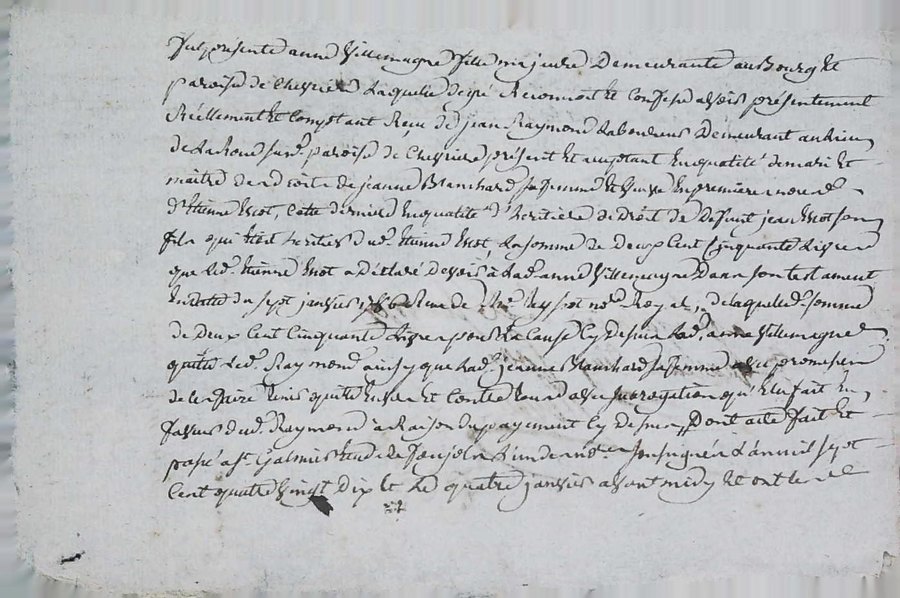 fut présente anne Villemagne fille majeure Demeurante au Bourg et
paroisse de Chevrieres Laquelle de gré Reconnoit et Confesse avoir présentement
Réellement et Comptant Reçu de jean Raymond Laboureur Demeurant au Lieu
de La paroisse de Chevriere présent et acceptant En qualité de mari et
maître des droits de jeanne Blanchard sa femme et veuve En premiere noces
d'Etienne Cette derniere En qualité d'heritiere de Droit de Defunt jean son
fils qui étoit heritier dud. Etienne La somme de Deux Cent Cinquante Livres
que led. Etienne a Déclaré devoir à Lad. anne Villemagne Dans son testament
En date du sept janvier Reçu de Me. not. Royal, de laquelle somme
de Deux Cent Cinquante Livres pour La Cause Cy Dessus Lad. anne Villemagne
quitte Led. Raymond ainsy que Lad. jeanne Blanchard sa femme avec promesse
de les faire tenir quitte Envers et Contre tous avec Subrogation qu'Elle fait En
faveur dud. Raymond à Raison du payement Cy Dessus, Dont acte fait et
passé a St. Galmier Etude de L'un des not. soussignés L'an mil sept
Cent quatre vingt Dix et Le quatre janvier avant midy Et ont les